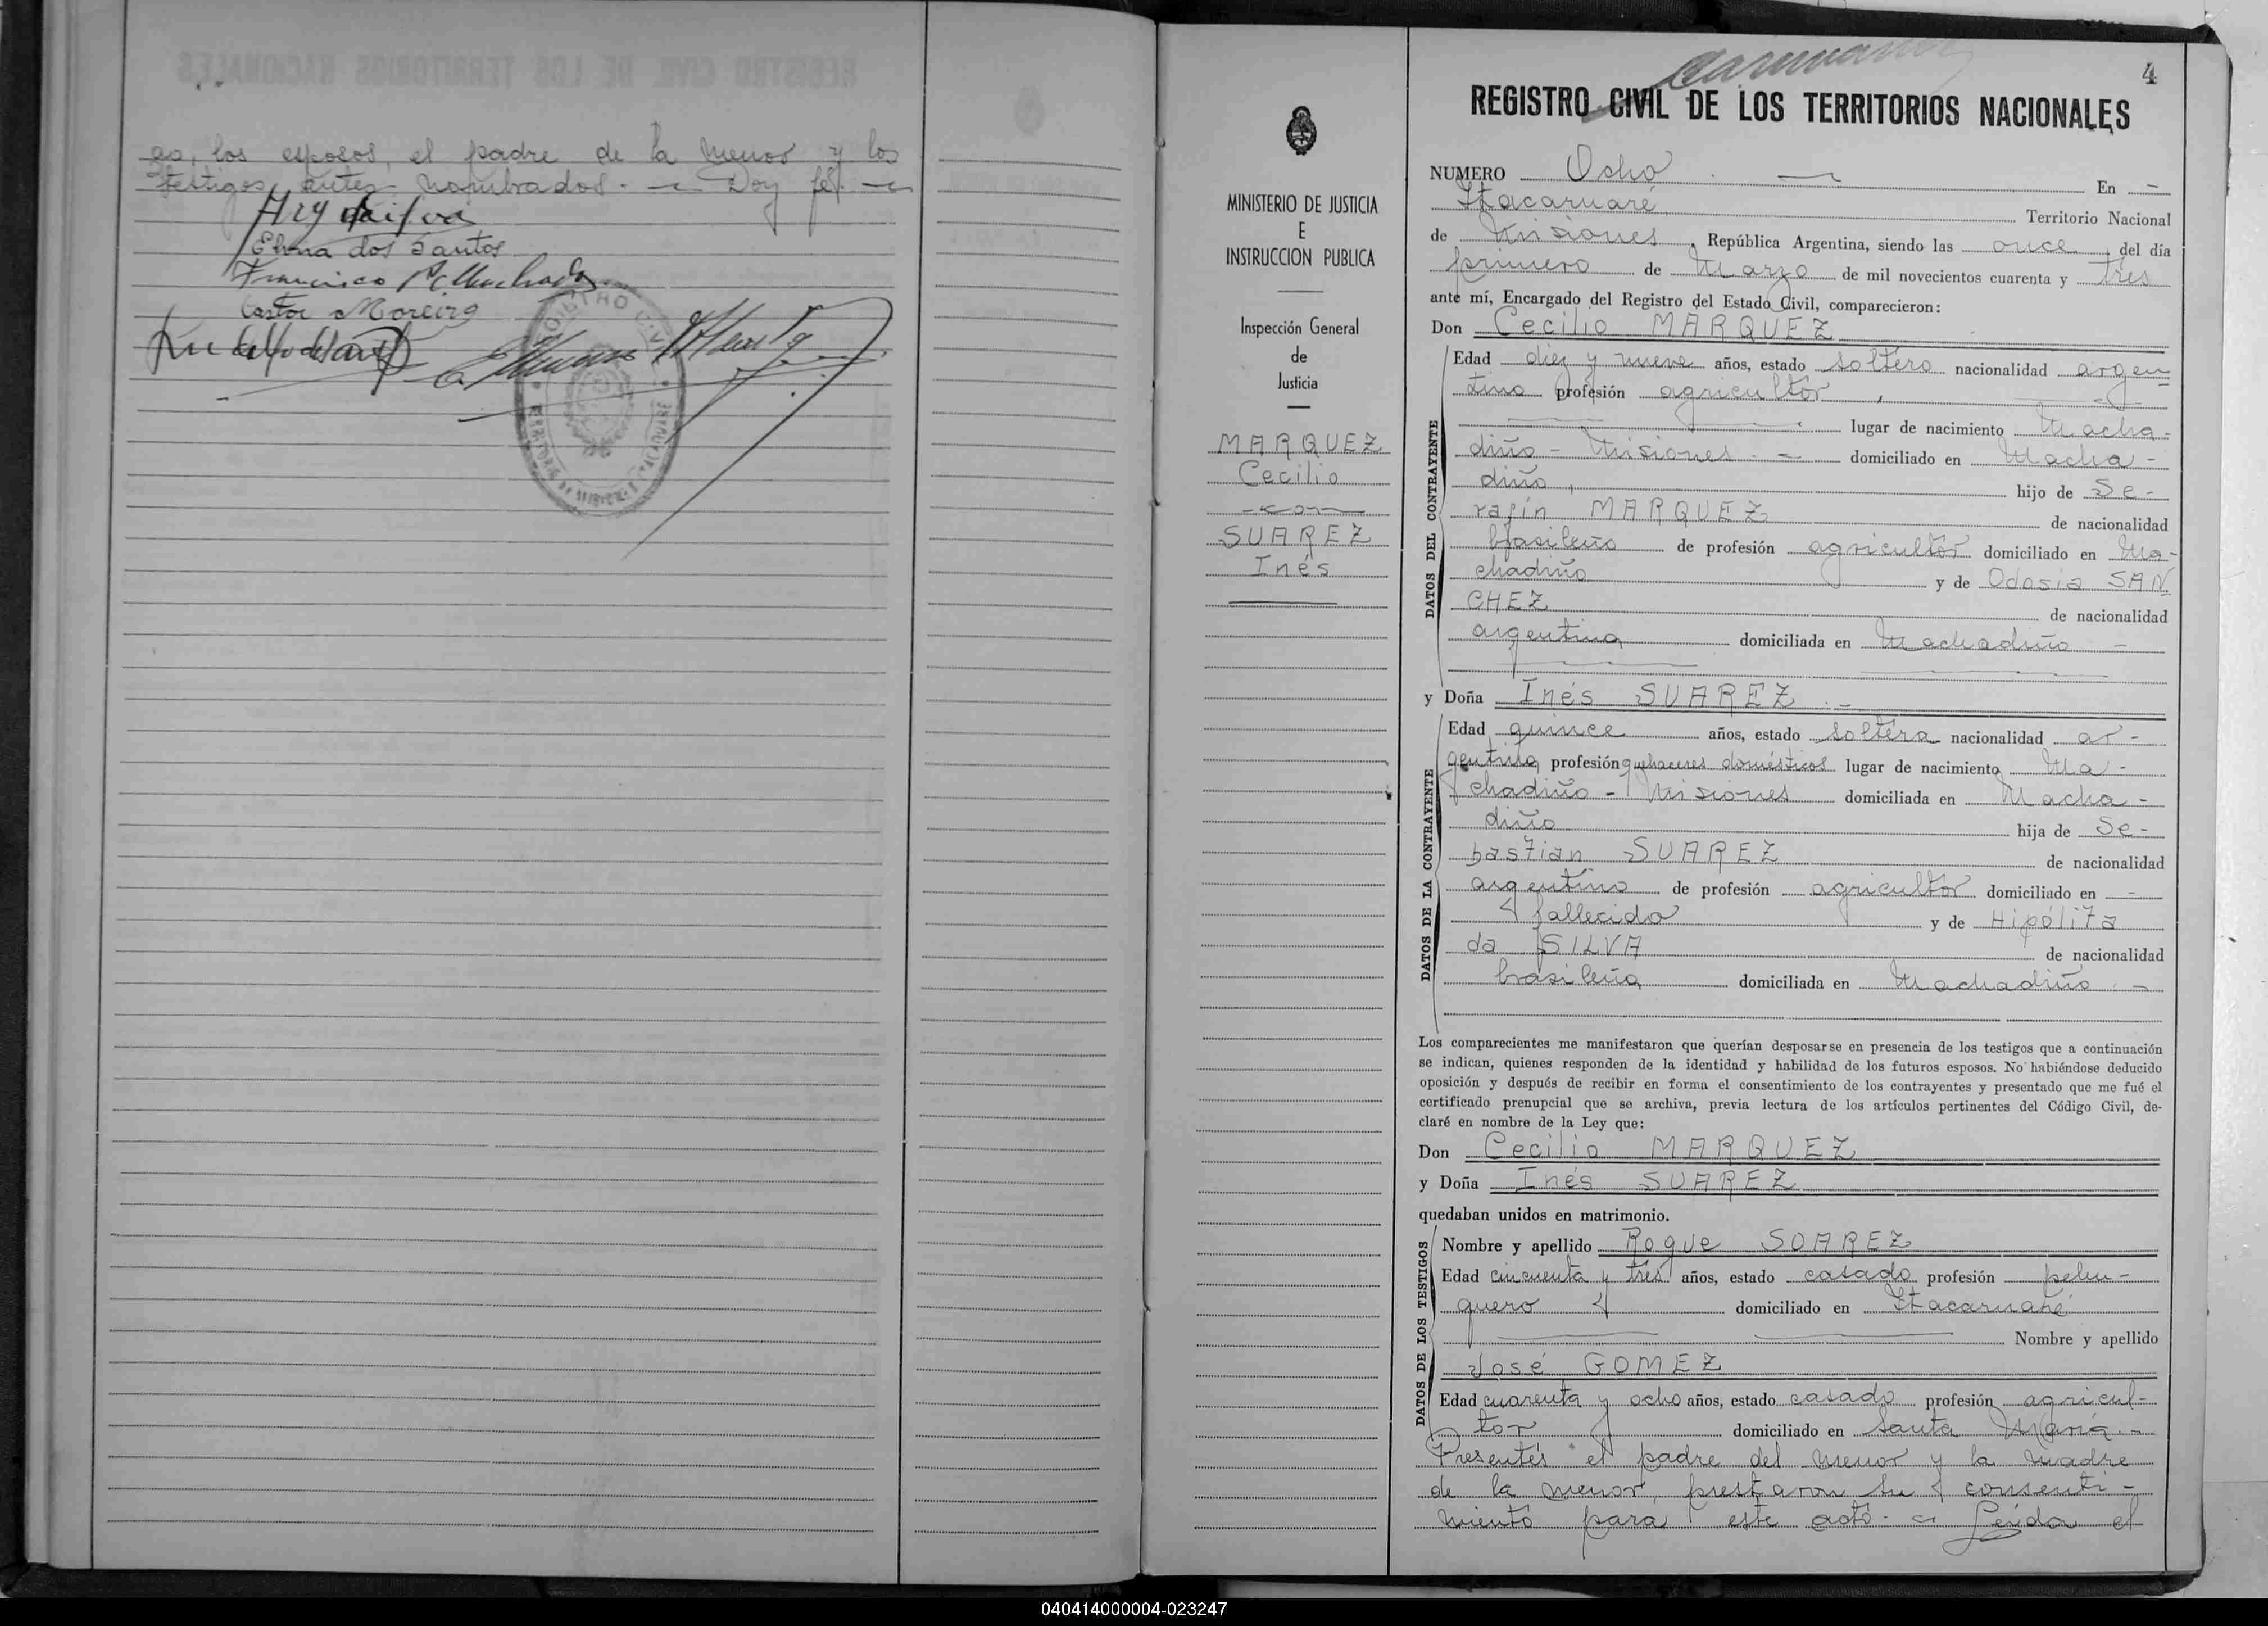 go, los esposos, el padre de la menor y los
testigos antes nombrados. - Doy fé. -
Elma dos Santos
Francisco
Castor Moreira
4
REGISTRO CIVIL DE LOS TERRITORIOS NACIONALES
MINISTERIO DE JUSTICIA
E
INSTRUCCION PUBLICA
Inspección General
de
Justicia
MARQUEZ
Cecilio
-con-
SUAREZ
Inés
NUMERO Ocho En -
Itacaruaré Territorio Nacional
de Misiones, República Argentina, siendo las once del día
primero de Marzo de mil novecientos cuarenta y tres
ante mí, Encargado del Registro del Estado Civil, comparecieron:
Don Cecilio MARQUEZ
DATOS DEL CONTRAYENTE
Edad diez y nueve años, estado soltero nacionalidad argen-
tino profesión agricultor,
lugar de nacimiento Macha-
diño - Misiones - domiciliado en Macha-
diño, hijo de Se-
rafín MARQUEZ de nacionalidad
brasileño de profesión agricultor domiciliado en Ma-
chadiño y de Odosia SAN
CHEZ de nacionalidad
argentina domiciliada en Machadiño -
y Doña Inés SUAREZ. -
DATOS DE LA CONTRAYENTE
Edad quince años, estado soltera nacionalidad ar-
gentina profesión quehaceres domésticos lugar de nacimiento Ma-
chadiño - Misiones domiciliada en Macha-
diño hija de Se-
bastian SUAREZ de nacionalidad
argentino de profesión agricultor domiciliado en -
fallecido y de Hipólita
da SILVA de nacionalidad
brasileña domiciliada en Machadiño -
Los comparecientes me manifestaron que querían desposarse en presencia de los testigos que a continuación
se indican, quienes responden de la identidad y habilidad de los futuros esposos. No habiéndose deducido
oposición y después de recibir en forma el consentimiento de los contrayentes y presentado que me fué el
certificado prenupcial que se archiva, previa lectura de los artículos pertinentes del Código Civil, de-
claré en nombre de la Ley que:
Don Cecilio MARQUEZ
y Doña Inés SUAREZ
quedaban unidos en matrimonio.
DATOS DE LOS TESTIGOS
Nombre y apellido Roque SOAREZ
Edad cincuenta y tres años, estado casado profesión pelu-
quero domiciliado en Itacaruaré
Nombre y apellido
José GOMEZ
Edad cuarenta y ocho años, estado casado profesión agricul-
tor domiciliado en Santa María.-
Presentes el padre del menor y la madre
de la menor, prestaron su consenti-
miento para este acto. - Leída el
040414000004-023247